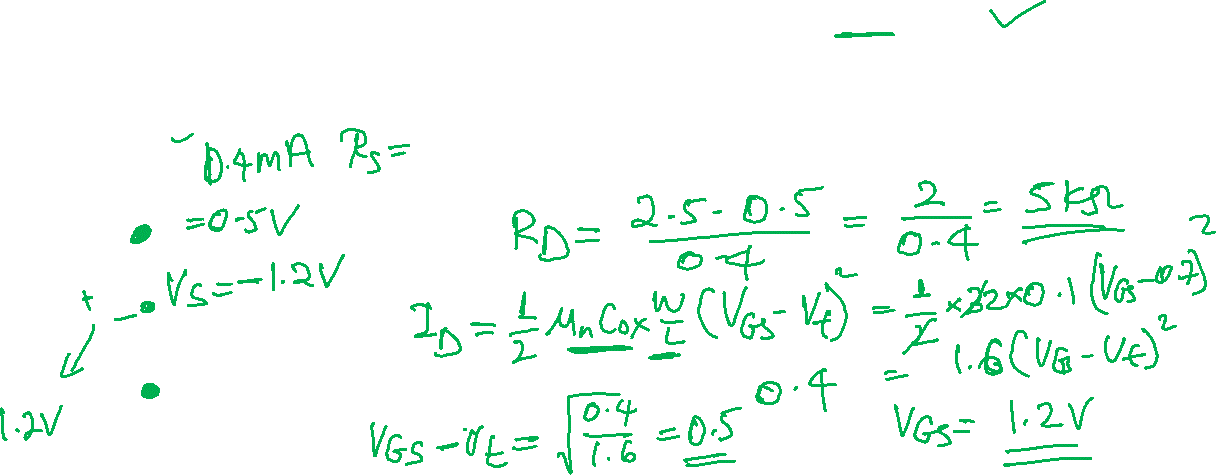 0.4mA Rs=
=0.5V
Vs=-1.2V
+ -
1.2V
RD= (2.5-0.5)/0.4 = 2/0.4 = 5kΩ
ID = 1/2 μnCox W/L (VGS-Vt)² = 1/2 ×32×0.1(VGS-0.7)²
0.4 = 1.6(VG-Vt)²
VGS-vt = √(0.4/1.6) = 0.5 VGS= 1.2V